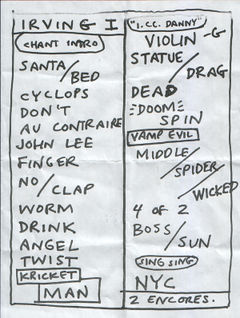 IRVING I
CHANT INTRO
SANTA/
BED
CYCLOPS
DON'T
AU CONTRAIRE
JOHN LEE
FINGER
NO/
CLAP
WORM
DRINK
ANGEL
TWIST
KRICKET
MAN
"I.C.C. DANNY"
VIOLIN -G
STATUE/
DRAG
DEAD
DOOM
SPIN
VAMP EVIL
MIDDLE/
SPIDER/
WICKED
4 OF 2
BOSS/
SUN
SING SING
NYC
2 ENCORES.